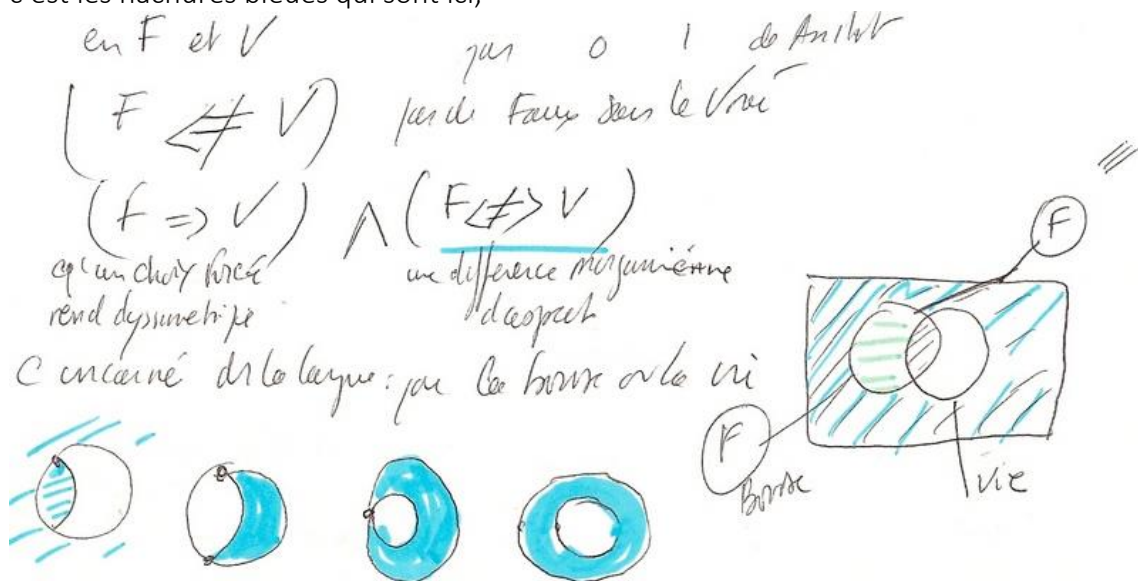 c'est les hachures bleues qui sont ici,
en F et V
0 1 de
(F <≠ V)
Faux dans le Vrai
(F => V) ∧ (F <≠> V)
qu'un choix forcé
rend dyssimetrique
une différence morganienne
d'aspect
C incarné ds la langue : par la bourse ou la vie
F
F
Bourse
vie